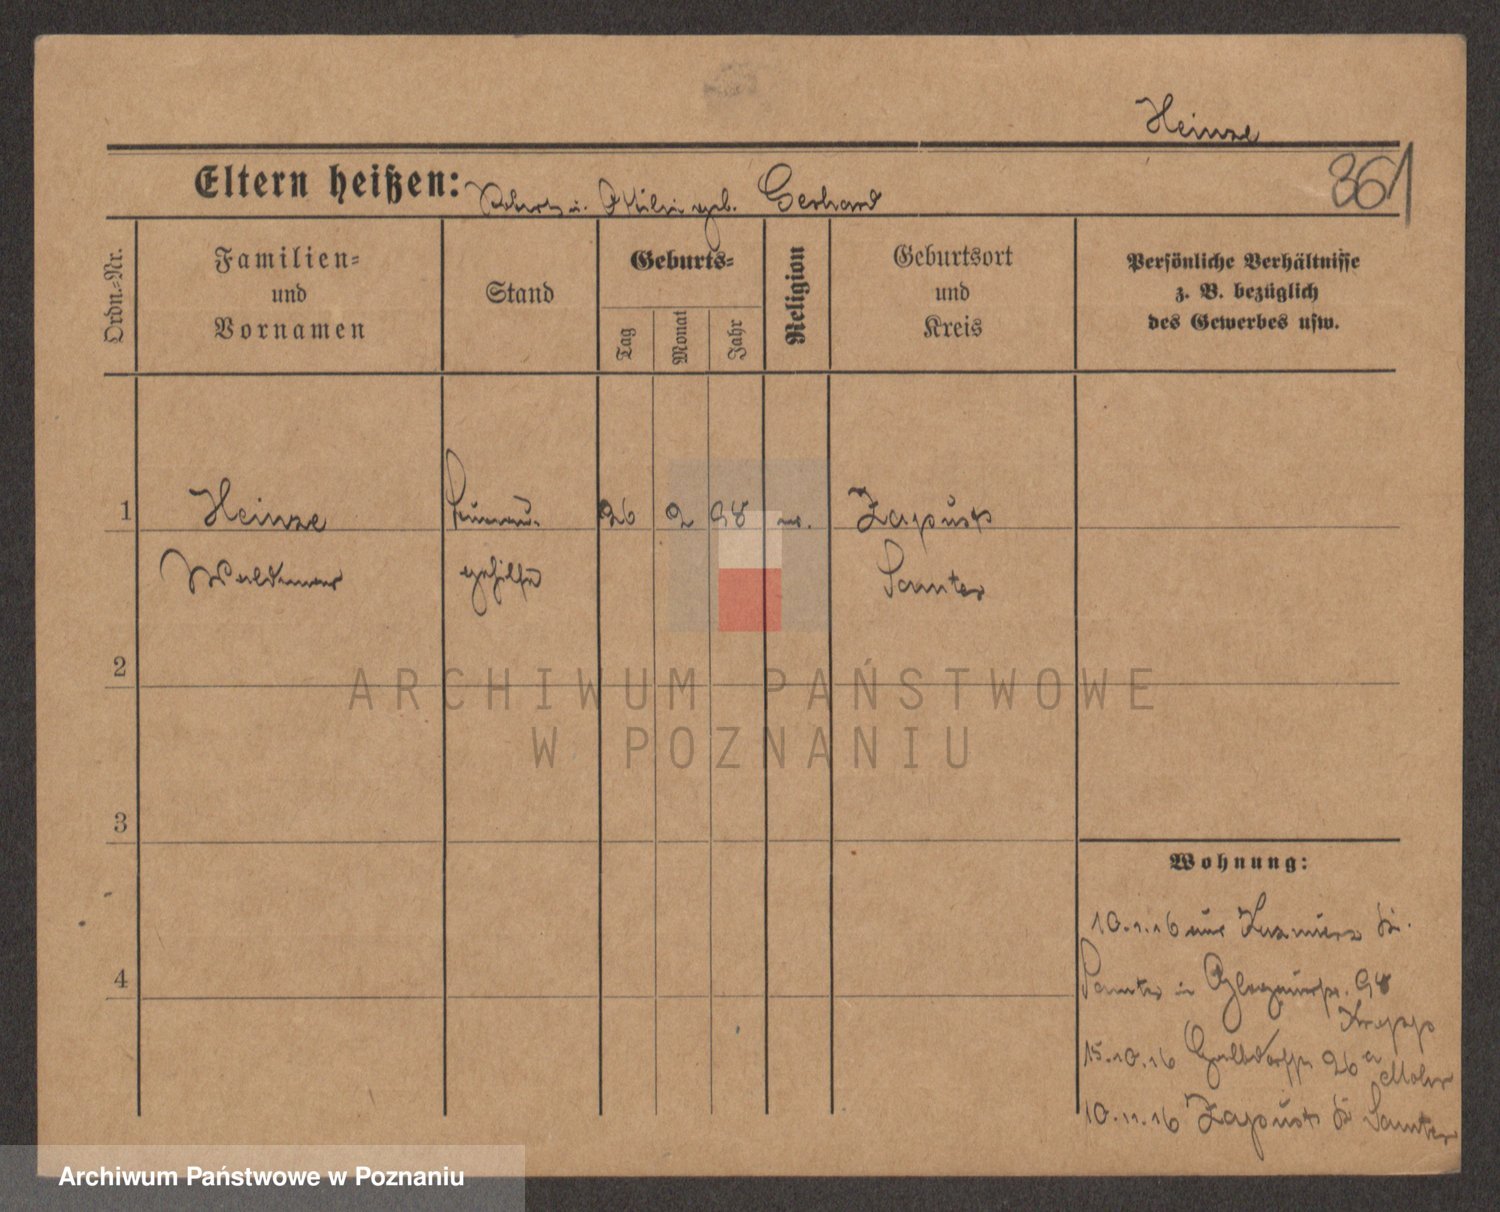 Heinze
361
Eltern heißen: Robert u. geb. Gerhard
Ordn.-Nr.
Familien-
und
Vornamen
Stand
Geburts-
Tag
Monat
Jahr
Religion
Geburtsort
und
Kreis
Persönliche Verhältnisse
z. B. bezüglich
des Gewerbes usw.
1
Heinze
26 2 98
Zapust
Waldemar
gehilfe
Samter
2
ARCHIWUM PAŃSTWOWE
W POZNANIU
3
Wohnung:
10.1.16 aus Kazmierz Kr.
4
Samter in 98
Krepp
15.10.16 26a Mohr
10.11.16 Zapust Kr Samter
Archiwum Państwowe w Poznaniu